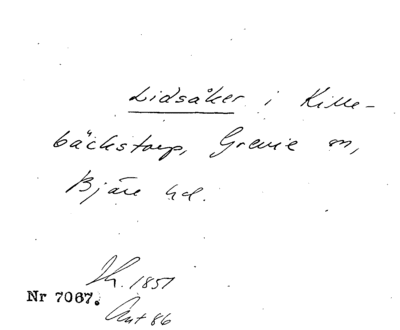 Lidsåker i Kille-
bäckstorp, Grevie sn,
Bjäre hd.
Jh. 1851
Nr 7067.
Ant 86